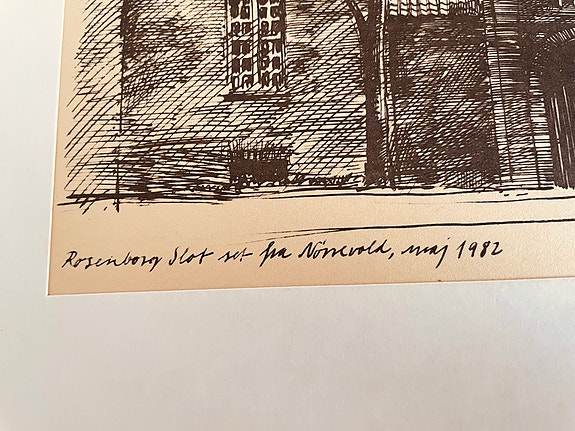 Rosenborg Slot set fra Nørrevold, maj 1982